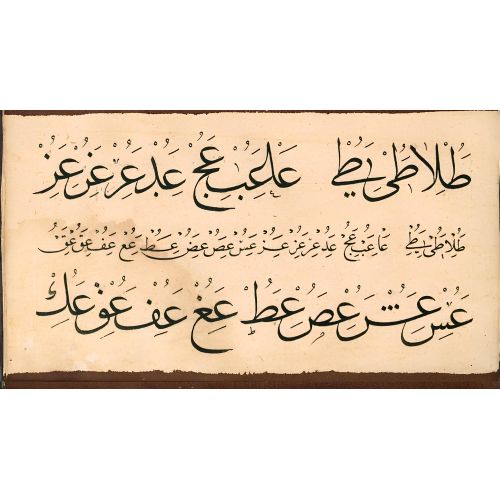 طلا طى يط عا عب عج عد عر عز عز
طلا طى يط عا عب عج عد عر عز عز عس عص عط عع عف عق
عس عص عط عع عف عق عك